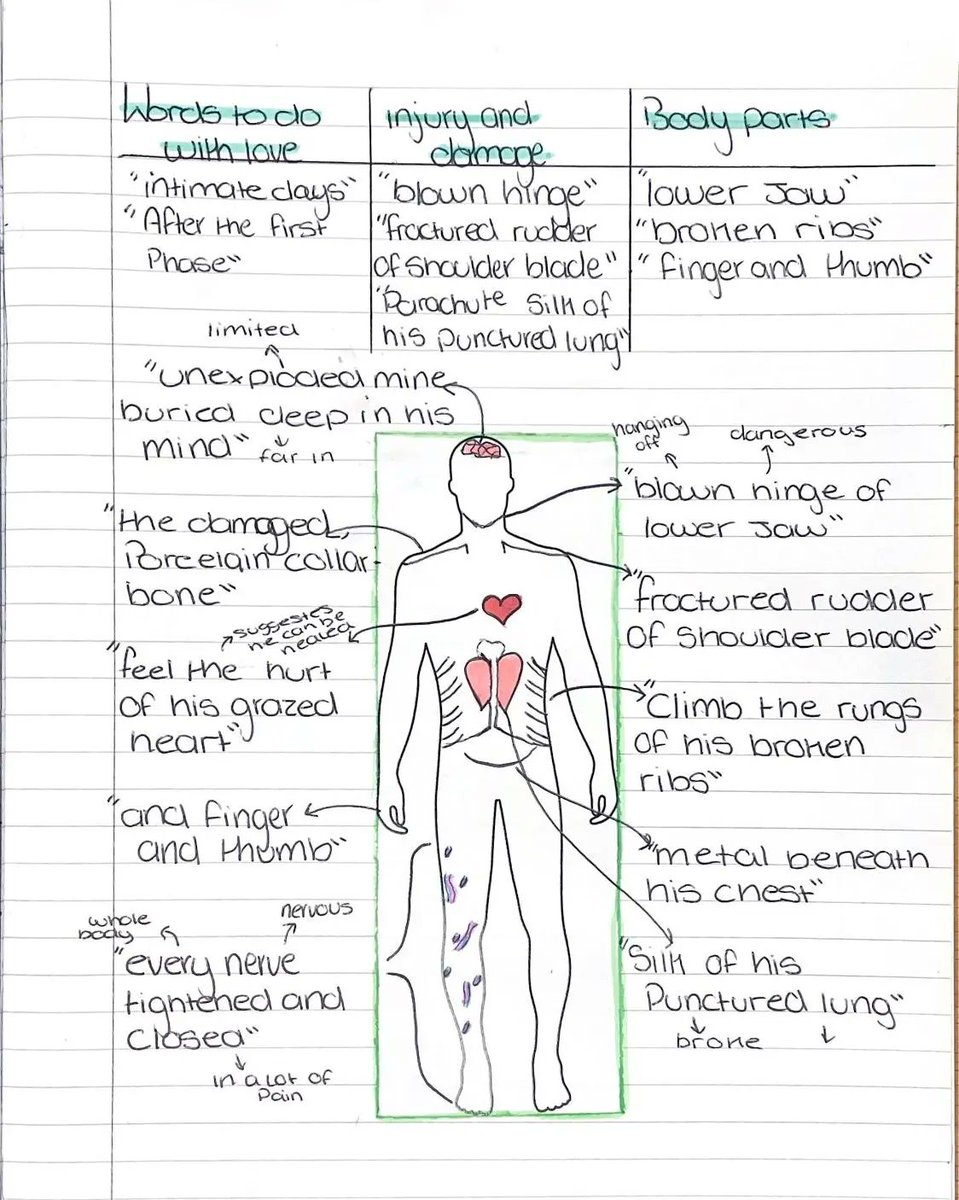 Words to do
with love
injury and
damage
Body parts
"intimate days"
"After the first
Phase"
"blown hinge"
"fractured rudder
of shoulder blade"
"Parachute Silk of
his punctured lung"
"lower Jaw"
"broken ribs"
"finger and thumb"
limited
"unexploded mine
buried deep in his
mind"
far in
hanging
off
dangerous
"blown hinge of
lower Jaw"
"the damaged,
Porcelain collar-
bone"
"fractured rudder
of Shoulder blade"
suggestes
he can be
healed
"feel the hurt
of his grazed
heart"
"Climb the rungs
of his broken
ribs"
"and finger
and thumb"
"metal beneath
his chest"
whole
body
nervous
"every nerve
tightened and
Closed"
in a lot of
Pain
"Silk of his
Punctured lung"
broke